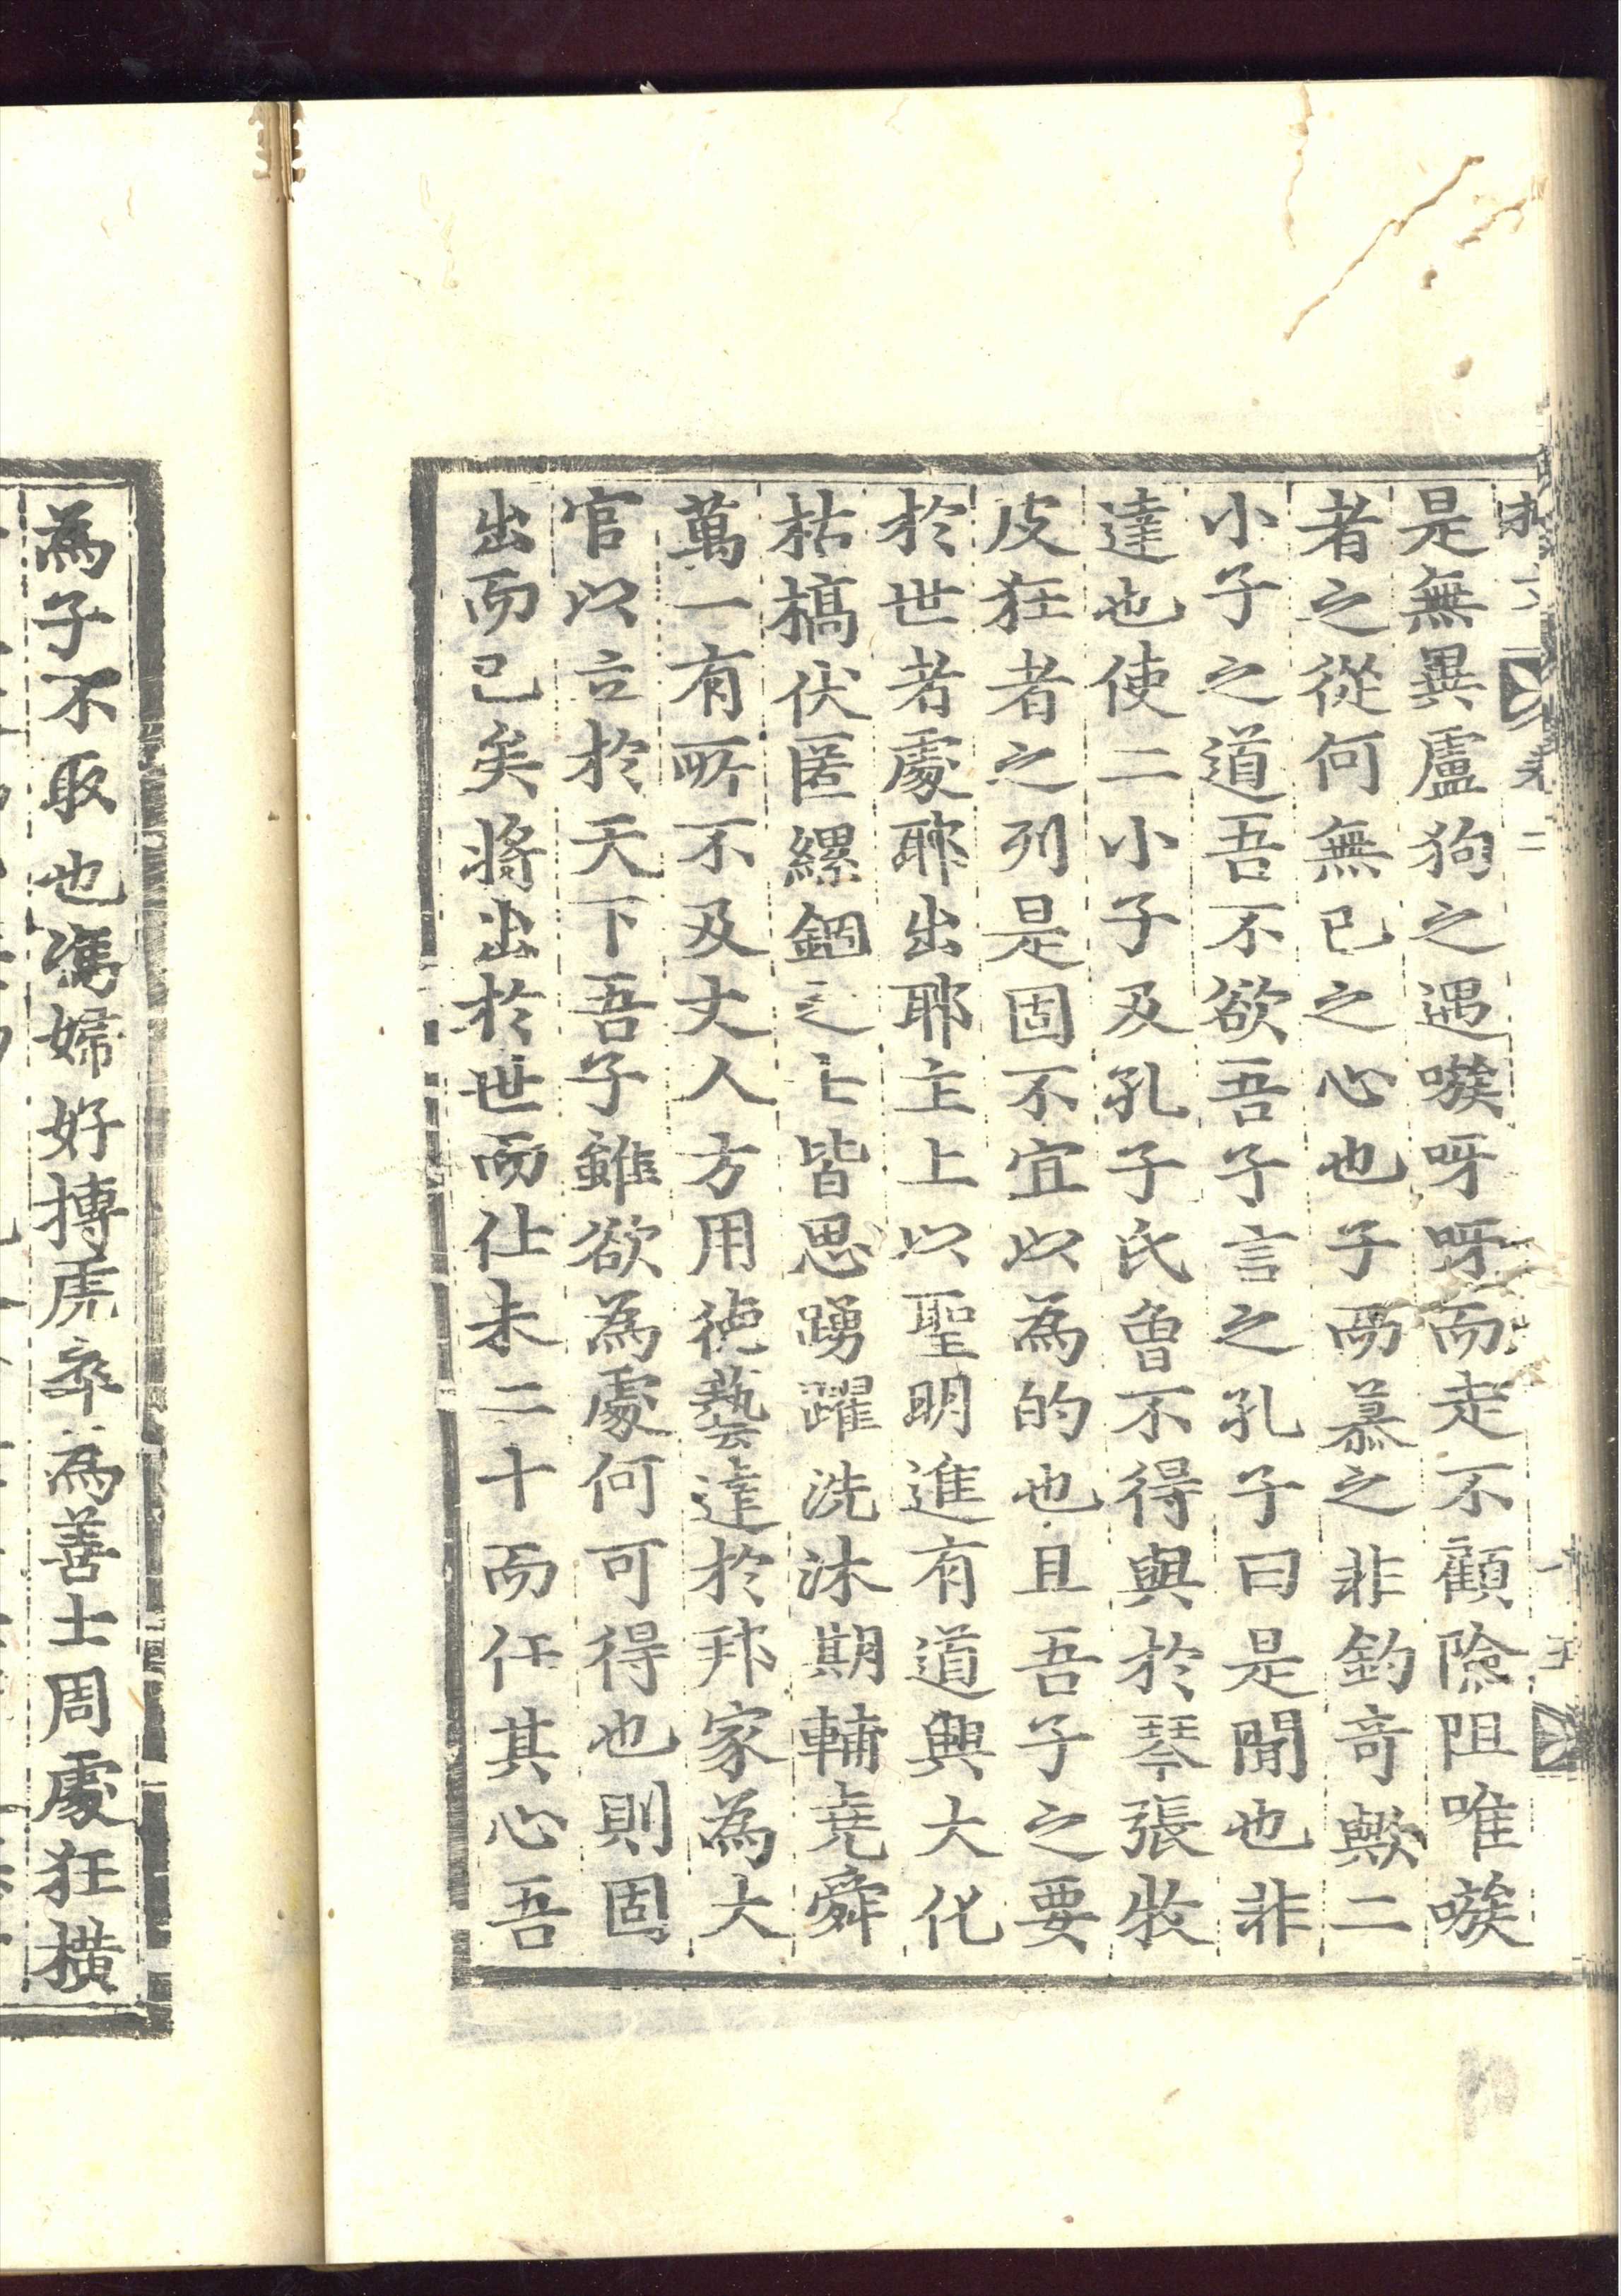 是無異盧狗之遇嗾呀呀而走不顧險阻唯嗾
者之從何無已之心也子而慕之非釣奇歟二
小子之道吾不欲吾子言之孔子曰是聞也非
達也使二小子及孔子氏曾不得與於琴張牧
皮狂者之列是固不宜以為的也且吾子之要
於世者處耶出耶主上以聖明進有道興大化
枯槁伏匿縲錮之士皆思踴躍洗沐期輔堯舜
萬一有所不及丈人方用德藝達於邦家為大
官以立於天下吾子雖欲為處何可得也則固
出而已矣將出於世而仕未二十而任其心吾
為子不取也馮婦好搏虎卒為善士周處狂橫